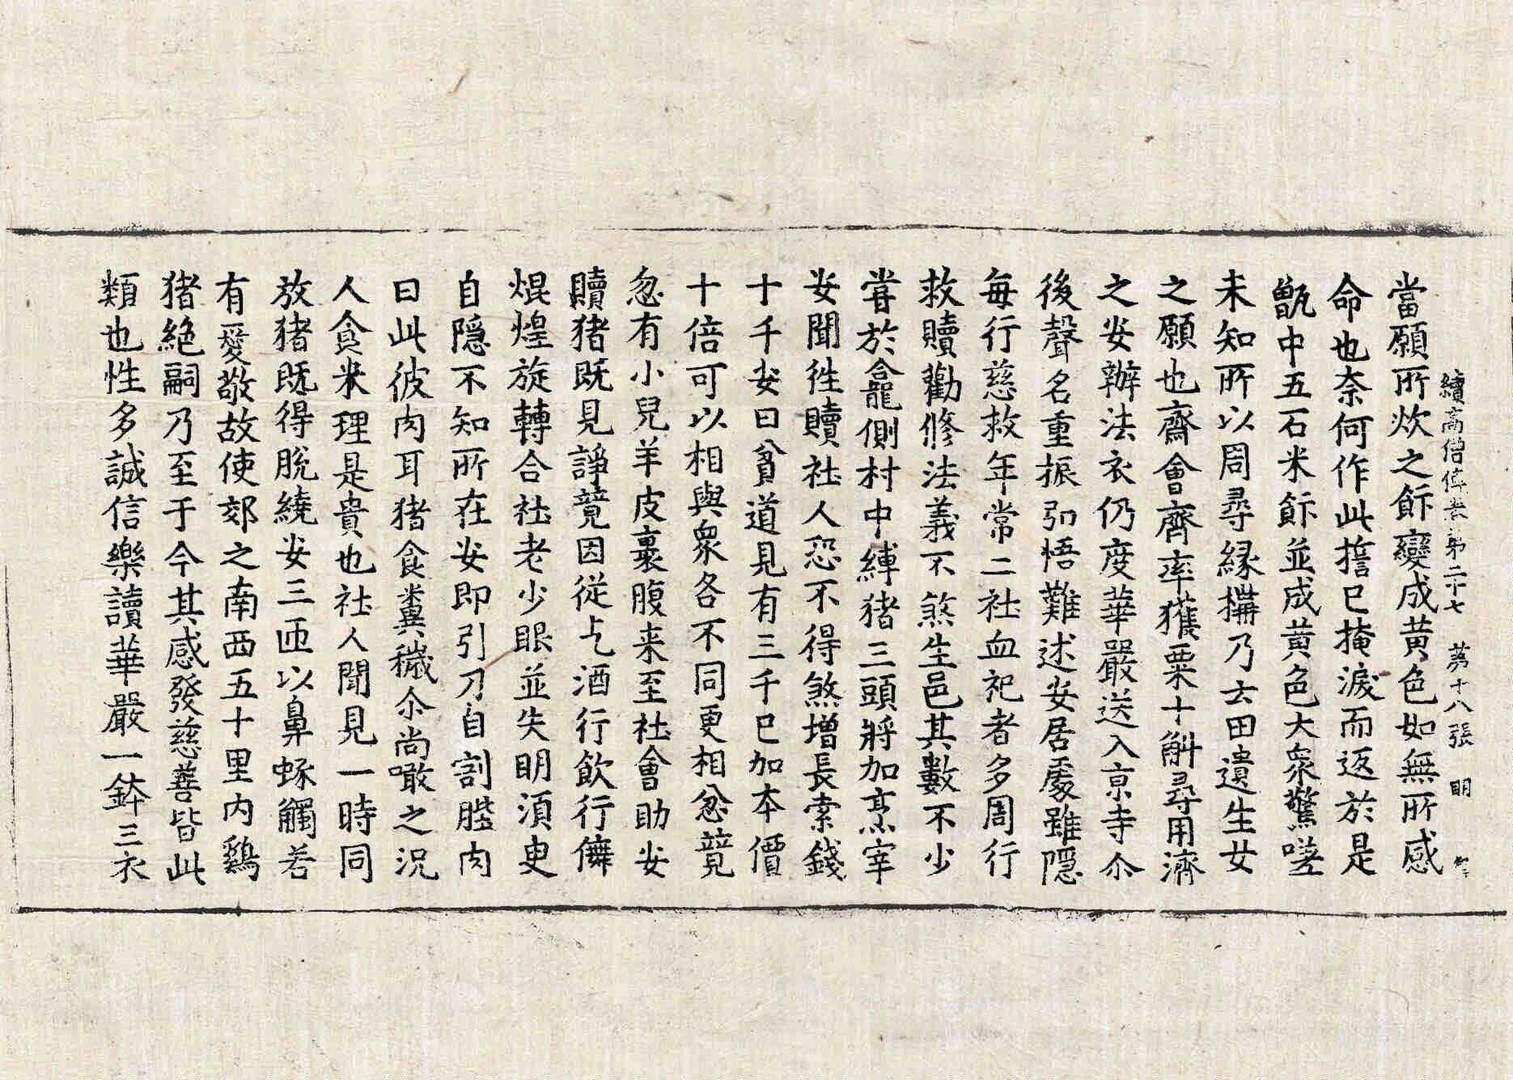 續高僧傳卷第二十七　第十八張　明
當願所炊之飰變成黃色如無所感
命也柰何作此擔已掩淚而返於是
甑中五石米飰並成黃色大衆驚嗟
未知所以周尋縁搆乃去田遺生女
之願也齋會齊率獲粟十斛尋用濟
之安辦法衣仍度華嚴送入京寺尒
後聲名重振弘悟難述安居處雖隱
每行慈救年常二社血祀者多周行
救贖勸修法義不煞生邑其數不少
甞於龕側村中縛猪三頭將加烹宰
安聞徃贖社人恐不得煞增長索錢
十千安曰貧道見有三千已加本價
十倍可以相與衆各不同更相忿競
忽有小兒羊皮裹腹来至社會助安
贖猪既見諍競因從乞酒行飲行儛
焜煌旋轉合社老少眼並失明湏臾
自隱不知所在安即引刀自割䏶肉
曰此彼肉耳猪食糞穢尒尚噉之況
人食米理是貴也社人聞見一時同
放猪既得脫繞安三匝以鼻㖨觸若
有愛敬故使郊之南西五十里內鷄
猪絕嗣乃至于今其感發慈善皆此
類也性多誠信樂讀華嚴一鉢三衣